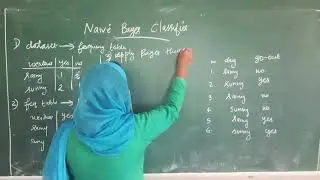 Naive Bayes Classifier
1) dataset → frequency table
weather yes no
Rainy 1 2
Sunny 2
2) freq table
weather yes
Rainy
Suny
3) apply Bayes theor
no day go-out
1. Rainy no
2. Sunny yes
3. Rainy no
4. Sunny no
5. Rainy yes
6. Sunny yes